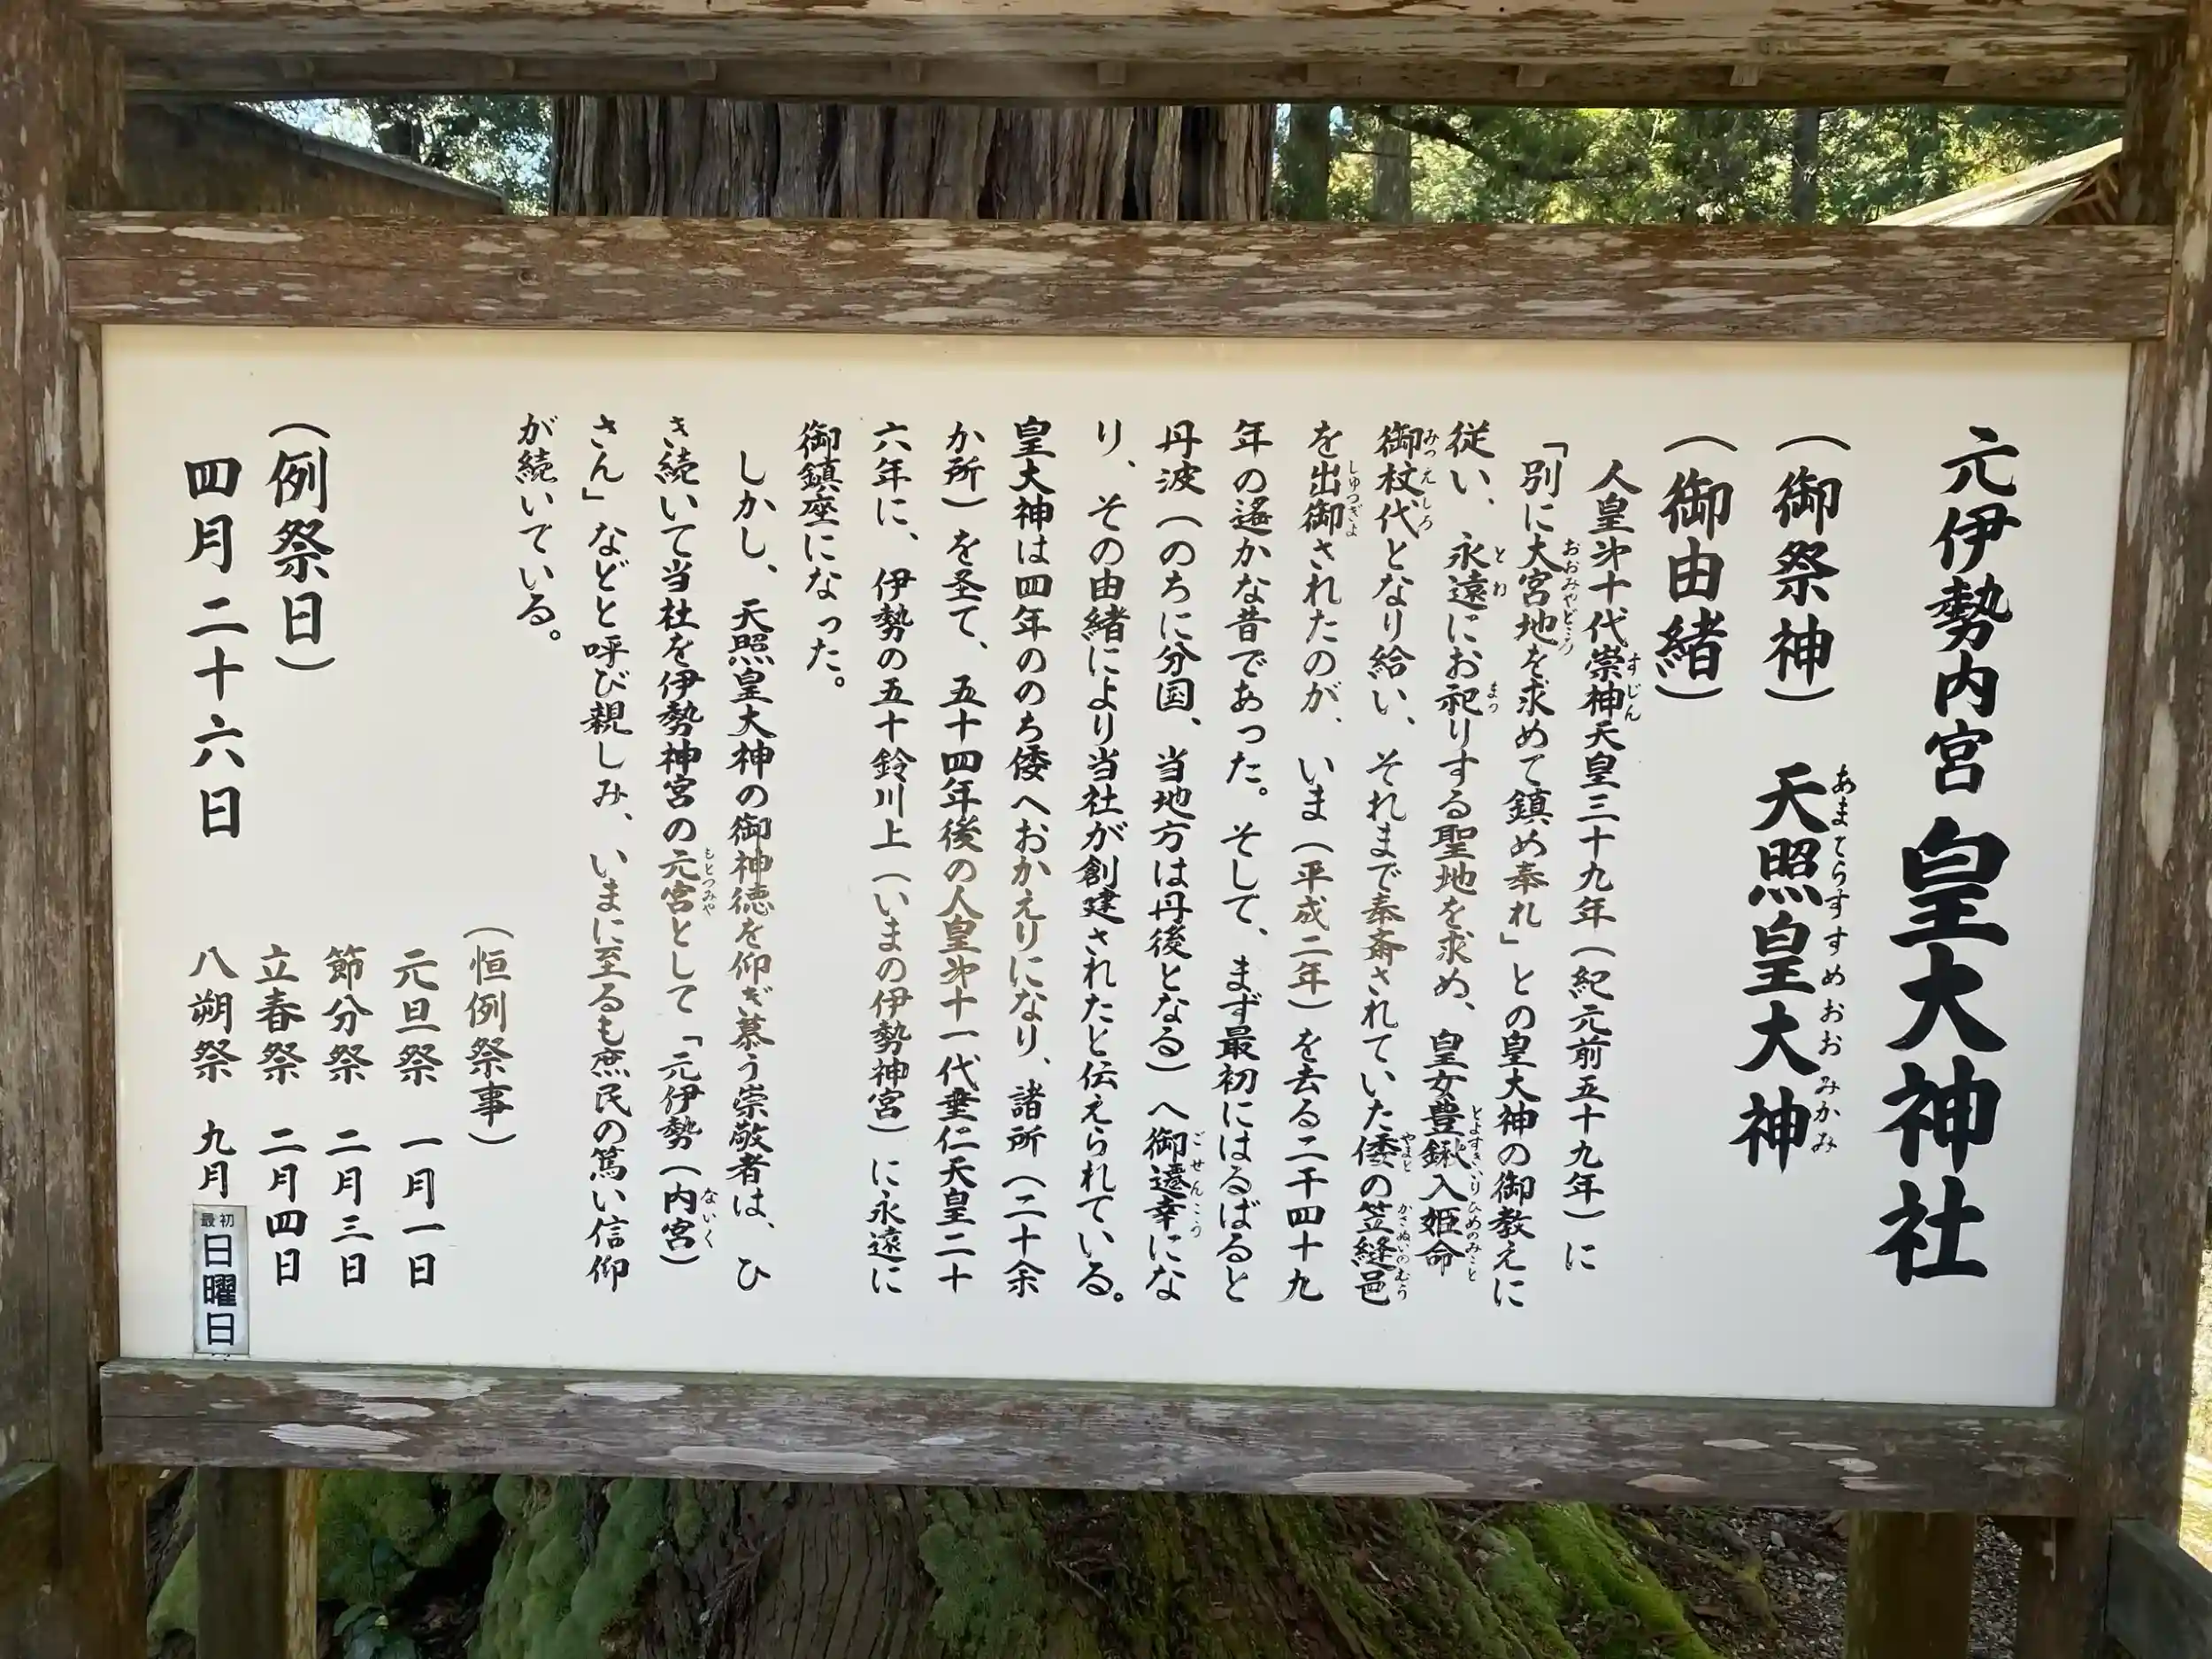 元伊勢内宮 皇大神社
（御祭神） 天照皇大神
あまてらすすめおおみかみ
（御由緒）
人皇第十代崇神天皇三十九年（紀元前五十九年）に
すじん
「別に大宮地を求めて鎮め奉れ」との皇大神の御教えに
おおみやどころ
従い、永遠にお祀りする聖地を求め、皇女豊鍬入姫命
とわ まつ とよすきいりひめのみこと
御杖代となり給い、それまで奉斎されていた倭の笠縫邑
みつえしろ やまと かさぬいのむら
を出御されたのが、いま（平成二年）を去る二千四十九
しゅつぎょ
年の遥かな昔であった。そして、まず最初にはるばると
丹波（のちに分国、当地方は丹後となる）へ御遷幸にな
ごせんこう
り、その由緒により当社が創建されたと伝えられている。
皇大神は四年ののち倭へおかえりになり、諸所（二十余
か所）を圣て、五十四年後の人皇第十一代垂仁天皇二十
六年に、伊勢の五十鈴川上（いまの伊勢神宮）に永遠に
御鎮座になった。
しかし、天照皇大神の御神徳を仰ぎ慕う崇敬者は、ひ
き続いて当社を伊勢神宮の元宮として「元伊勢（内宮）
もとつみや ないく
さん」などと呼び親しみ、いまに至るも庶民の篤い信仰
が続いている。
（恒例祭事）
元旦祭 一月一日
節分祭 二月三日
立春祭 二月四日
八朔祭 九月 最初 日曜日
（例祭日）
四月二十六日